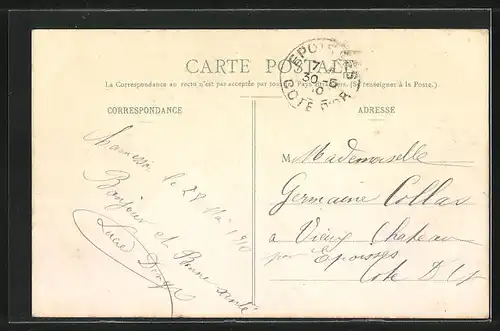 CARTE POSTALE
La Correspondance au recto n'est pas acceptée par tous les Pays étrangers. (Se renseigner à la Poste.)
CORRESPONDANCE
ADRESSE
EPOISSES
7
30 - 5
10
COTE D'OR
Chamesson le 28 Mai 1910
Bonjour et Bonne santé
Lucie
M Mademoiselle
Germaine Collas
a Vieux Chateau
par Epoisses
Cote D'Or